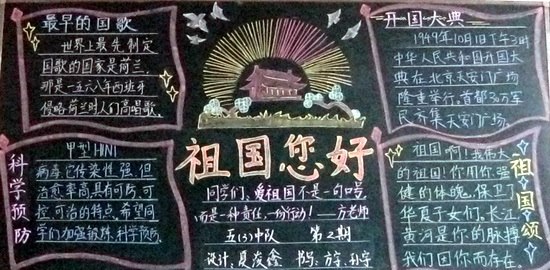 最早的国歌
世界上最先制定
国歌的国家是荷兰,
那是一五六八年西班牙
侵略荷兰时人们高唱歌.
开国大典
1949年10月1日下午3时
中华人民共和国开国大
典在北京天安门广场
隆重举行,首都30万军
民齐集天安门广场.
科学预防
甲型H1N1
病毒它传染性强,但
治愈率高具有可防,可
控,可治的特点,希望同
学们加强锻炼,科学预防.
祖国您好
同学们,爱祖国不是一句口号,
而是一种责任,一份行动!——方老师
五(3)中队 第2期
设计:夏俊鑫 书写:方宇.孙宇
祖国颂
祖国啊!我伟大
的祖国!你用你强
健的体魄,保卫了
华夏子女们,长江
黄河是你的脉搏
我们因你而存在.